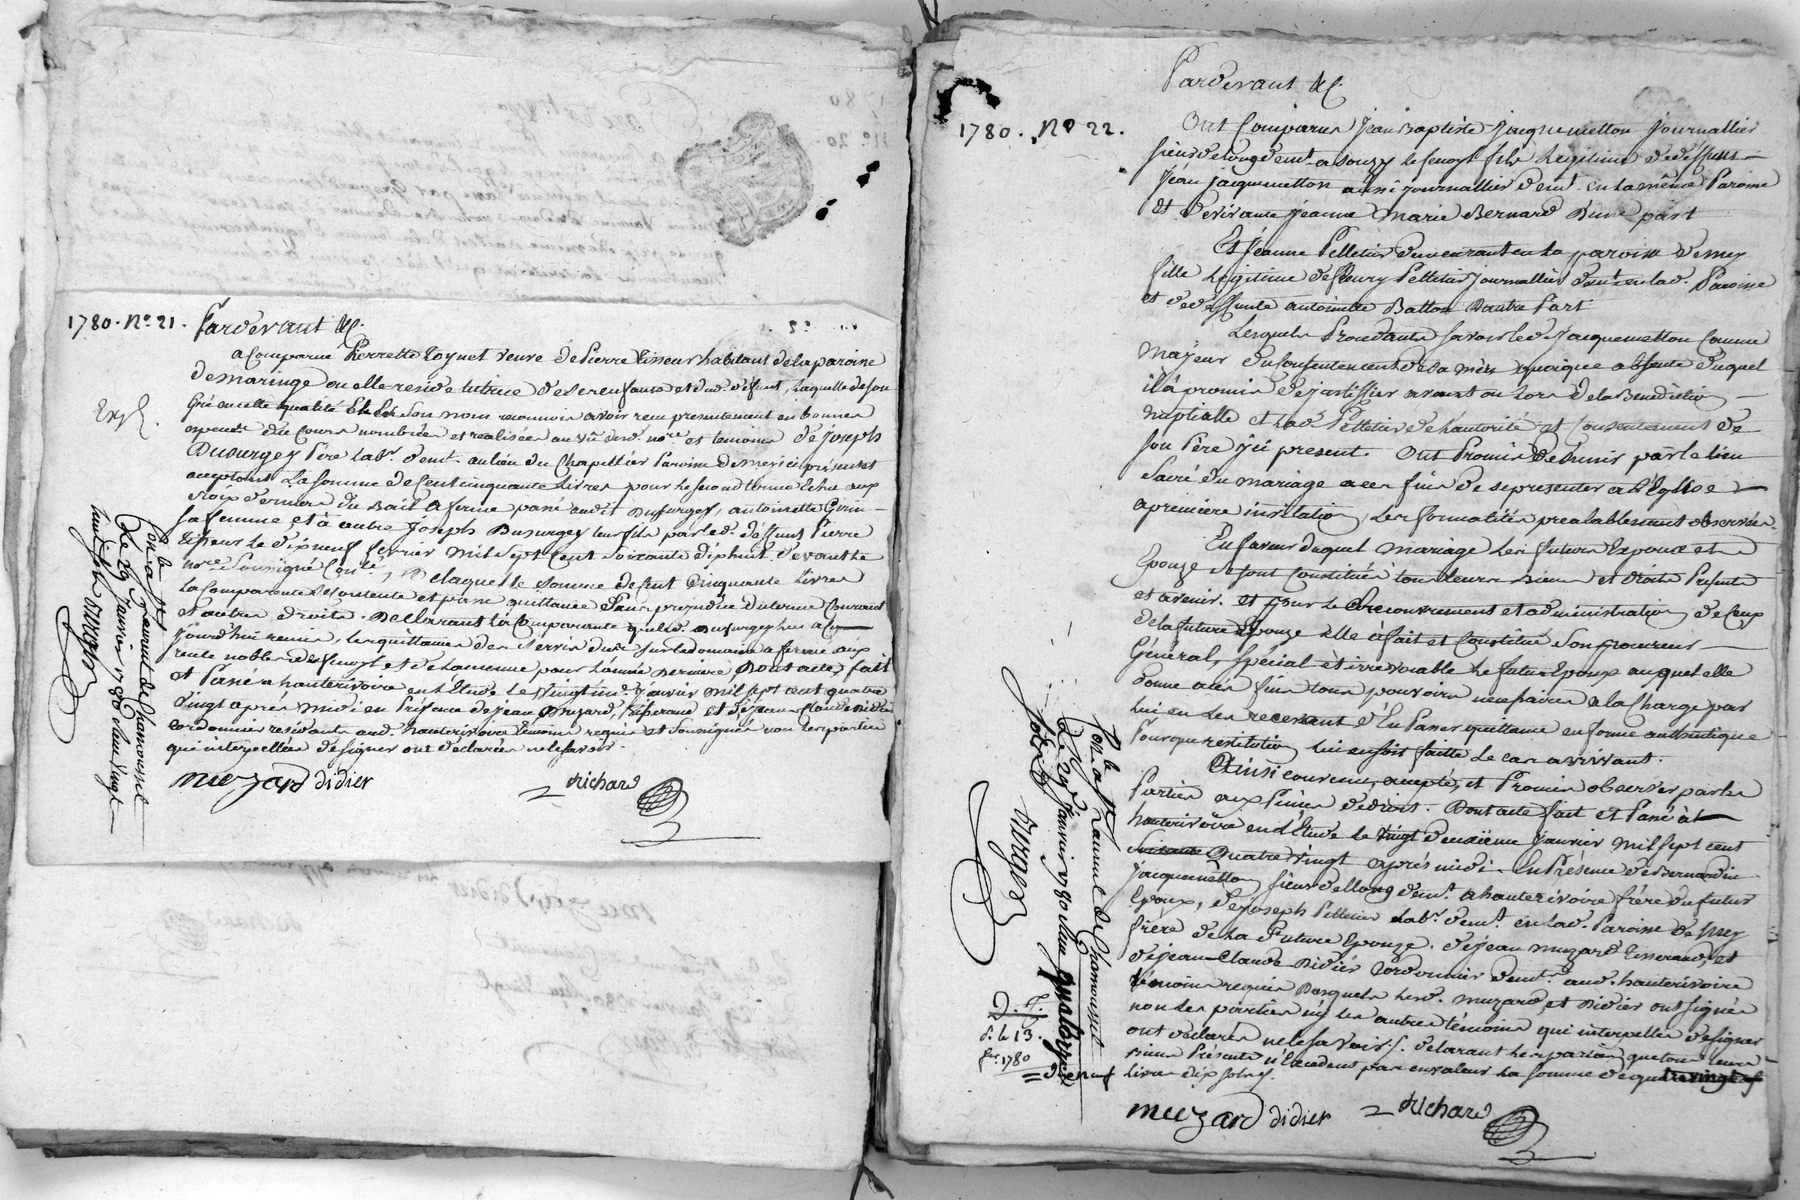 1780. N° 21. Pardevant &c.
a Comparue Pierrette Toynet veuve de Pierre Tisseur habitant de la paroisse
de maringe ou elle reside tutrice de ses enfants et dud. défunt, laquelle de son
gré en cette qualité et en son nom reconnois avoir recu presentement en bonnes
especes du Cours nombrées et realisées au vû desd. nore. et temoins de Joseph
Dusurgey Pere labr. demt. au lieu du Chapellier Paroisse de meys ici présent et
acceptant La somme de Cent cinquante Livres pour le second terme Echu aux
Rois dernier du Bail a ferme passé audit Dusurgey, antoinette
sa femme et à autre Joseph Dusurgey leur fils par led. déffunt Pierre
Tisseur le dixneuf fevrier mil sept Cent soixante dixhuit devant le
nore. soussigné Conlé, De laquelle somme de Cent Cinquante Livres
La comparante se contente et passe quittance sans prejudice du terme Courrant
et autres droits. Declarant la Comparante que led. Dusurgey lui a ce
jourd'hui remis les quittances des servis dus sur le domaine afermé aux
rente nobles de fenoyl et de la menue pour l'année derniere Dont acte, fait
et Passé a hauterivoire en l'Etude le Vingt me. Janvier mil sept cent quatre
Vingt après midi en Présence de jean Muzard, Tisserand et de jean Claude Didier
Cordonnier residants aud. hauterivoire Temoins requis et soussignés non les parties
qui interpellées de signer ont declarées ne le savoir.
Muzard didier Richard
Exp.
Con. a St Laurent de Chamousset
Le 29 Janvier 1780
1780. N° 22.
Pardevant &c.
Ont Comparus Jean Baptiste Jacquemetton Journallier
sieur de long demt. a souzy le fenoyl fils Legitime de deffunt
Jean Jacquemetton aussi journallier demt. en la même Paroisse
et de vivante Jeanne Marie Bernard d'une part
Et Jeanne Pelletier demeurant en la paroisse de mey
fille Legitime de fleury Pelletier journallier demt. en lad. Paroisse
et de deffunte antoinette Batton Dautre Part
Lesquels Procedants savoir led. Jacquemetton Comme
Majeur du Consentement de sa mère quoique absente duquel
il a promis de justiffier avant ou lors de la Benediction
nuptialle et lad. Pelletier de l'autorité et Consentement de
son Père ici present. Ont Promis de s'unir par le lien
Sacré du mariage a ces fins de se presenter a L'Eglise
a premiere invitation, les formalités prealablement observées.
En faveur duquel mariage les futurs Epoux et
Epouze se sont Constitués tous leurs Biens et droits Presents
et avenir. et pour le recouvrement et administration de Ceux
de la future Epouze elle a fait et Constitué son procureur
Général, spécial et irrevocable le futur Epoux auquel elle
donne a ces fins tous pouvoirs necessaires a la Charge par
lui en les recevant d'En Passer quittance en forme authentique
Pour que restitution lui en soit faitte le cas arrivant.
Ainsi convenu, accepté, et Promis observer par les
Parties aux Peines de droit. Dont acte fait et Passé à
hauterivoire en l'Etude le vingt deuxieme Janvier Mil sept cent
Quatre Vingt après midi. En Présence de Bernardin
Jacquemetton sieur de long demt. a hauterivoire frère du futur
Epoux, de joseph Pelletier Labr. demt. en lad. Paroisse de Mey
frère de La Future Epouze, de jean Muzard Tisserand, et
de jean Claude Didier Cordonnier demts. aud. hauterivoire
temoins requis Desquels lesd. muzard et Didier ont signés
non les parties ny les autres témoins qui interpellés de signer
ont declarés ne le savoir. declarant les parties que tous leurs
Biens Présents n'Excedent pas en valeur la somme de
Livres dix sols
Muzard didier Richard
Con. a St Laurent de Chamousset
Le 29e Janvier 1780
d. le 13.
fer. 1780